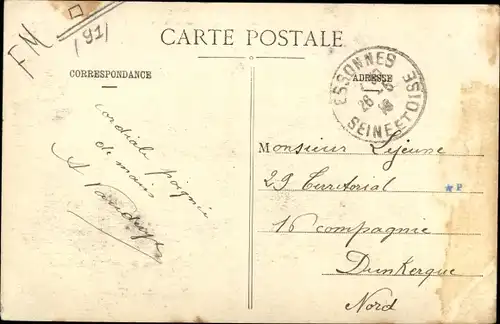 FM
(91)
CARTE POSTALE
CORRESPONDANCE
ADRESSE
ESSONNES
26
SEINE ET OISE
cordiale poignée
de main
Monsieur Lejeune
29 Territorial
16 compagnie
Dunkerque
Nord